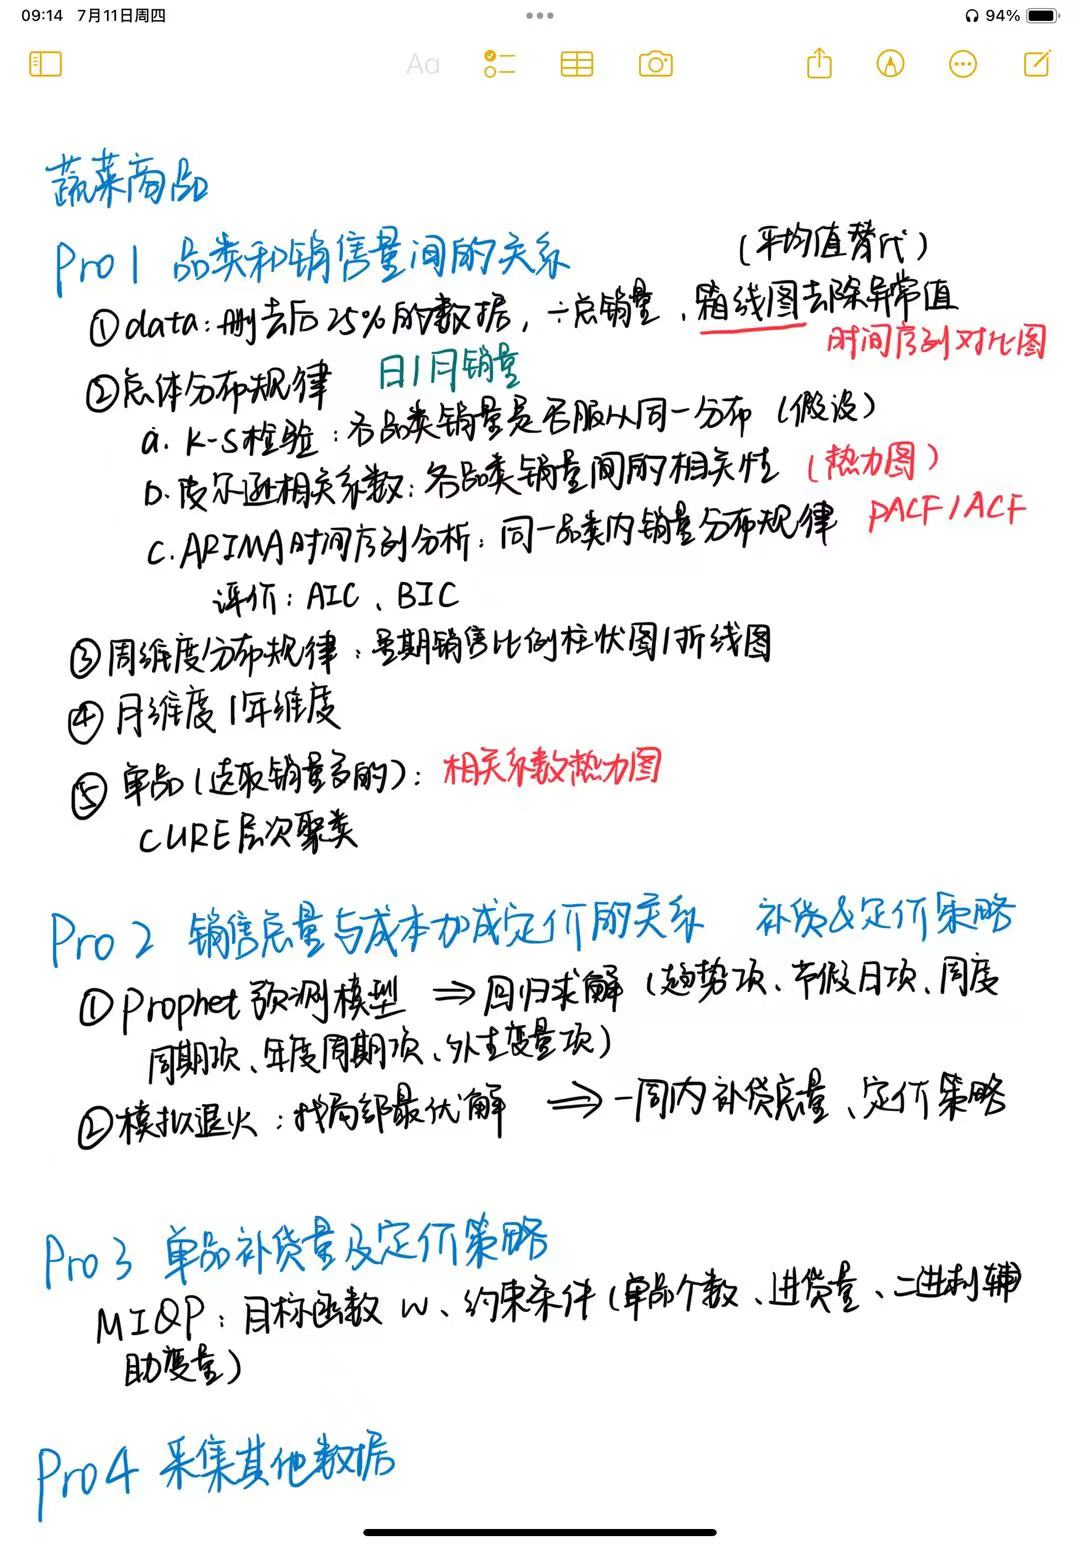 09:14 7月11日周四
94%
Aa
蔬菜商品
Pro 1 品类和销售量间的关系
(平均值替代)
①data:删去后25%的数据,÷总销量、箱线图去除异常值
时间序列对比图
②总体分布规律 日/月销量
a. K-S检验:各品类销量是否服从同一分布 (假设)
b. 皮尔逊相关系数:各品类销量间的相关性 (热力图)
c. ARIMA时间序列分析:同一品类内销量分布规律 PACF/ACF
评价:AIC、BIC
③周维度分布规律:星期销售比例柱状图/折线图
④月维度/年维度
⑤单品(选取销量多的):相关系数热力图
CURE层次聚类
Pro 2 销售总量与成本加成定价的关系 补货&定价策略
①Prophet预测模型 ⇒ 回归求解(趋势项、节假日项、周度
周期项、年度周期项、外生变量项)
②模拟退火:找局部最优解 ⇒ 一周内补货总量、定价策略
Pro 3 单品补货量及定价策略
MIQP:目标函数 W、约束条件(单品个数、进货量、二进制辅
助变量)
Pro 4 采集其他数据